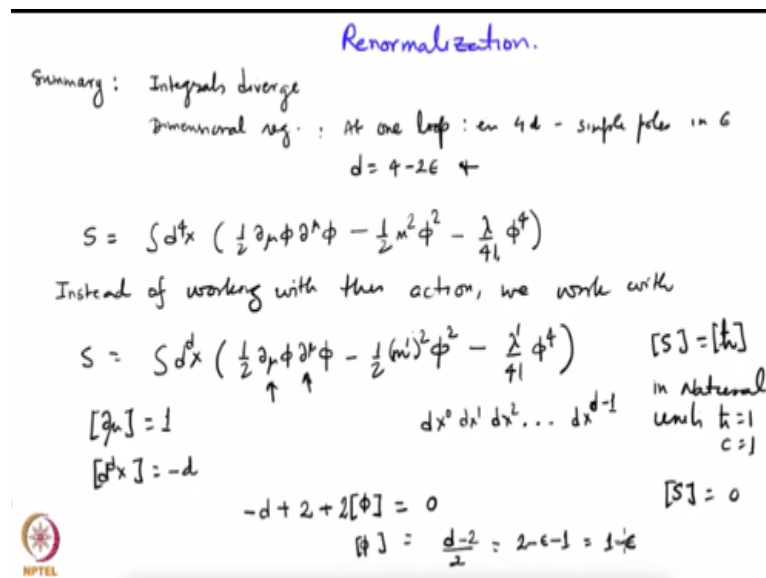 Renormalization.
Summary : Integrals diverge
Dimensional reg. : At one loop : in 4d - simple poles in ϵ
d = 4-2ϵ
S = ∫d⁴x ( ½ ∂_μϕ ∂^μϕ - ½ m²ϕ² - λ/4! ϕ⁴ )
Instead of working with this action, we work with
S = ∫d^dx ( ½ ∂_μϕ ∂^μϕ - ½ (m')²ϕ² - λ'/4! ϕ⁴ ) [S] = [ħ]
↑ ↑ in Natural
[∂_μ] = 1 dx⁰ dx¹ dx² ... dx^{d-1} units ħ=1
c=1
[d^dx] = -d
-d + 2 + 2[ϕ] = 0 [S] = 0
[ϕ] = (d-2)/2 = 2-ϵ-1 = 1-ϵ
NPTEL